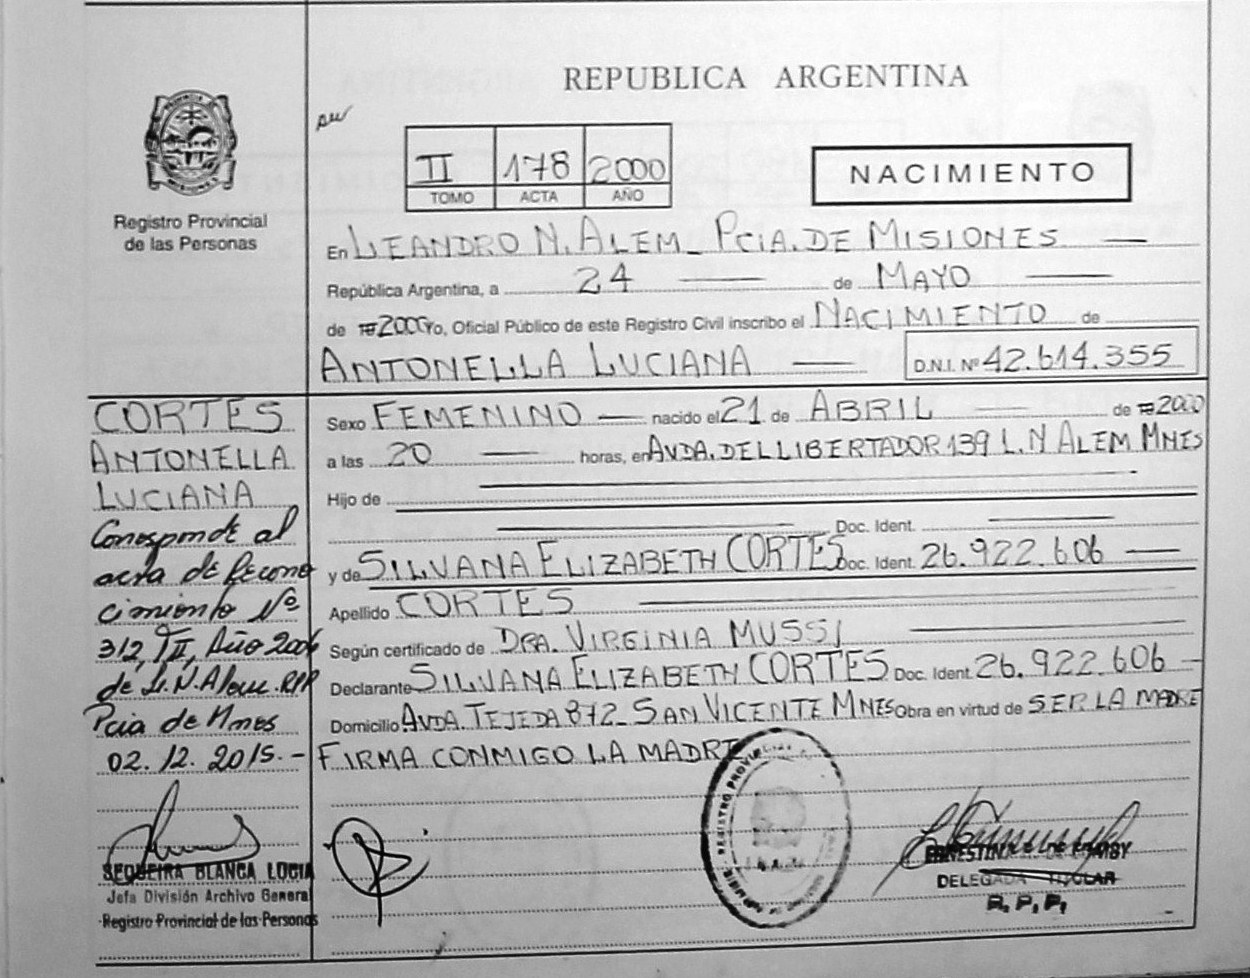 REPUBLICA ARGENTINA
II 178 2000
TOMO ACTA AÑO
NACIMIENTO
Registro Provincial
de las Personas
En LEANDRO N. ALEM_ PCIA. DE MISIONES
República Argentina, a 24 de MAYO
de 2000 yo, Oficial Público de este Registro Civil inscribo el NACIMIENTO de
ANTONELLA LUCIANA D.N.I. Nº 42.614.355
CORTES
ANTONELLA
LUCIANA
Corresponde al
acta de Recono
cimiento Nº
312, TII, Año 2006
de L.N.Alem. RPP
Pcia de Mnes
02.12.2015.-
SEQUEIRA BLANCA LUCIA
Jefa División Archivo General
Registro Provincial de las Personas
Sexo FEMENINO nacido el 21 de ABRIL de 2000
a las 20 horas, en AVDA. DEL LIBERTADOR 139 L. N ALEM MNES
Hijo de
Doc. Ident.
y de SILVANA ELIZABETH CORTES Doc. Ident. 26.922.606
Apellido CORTES
Según certificado de DRA. VIRGINIA MUSSI
Declarante SILVANA ELIZABETH CORTES Doc. Ident. 26.922.606
Domicilio AVDA. TEJEDA 872_ SAN VICENTE MNES Obra en virtud de SER LA MADRE
FIRMA CONMIGO LA MADRE
REGISTRO PROVINCIAL
DELEGADA TITULAR
R. P. P.